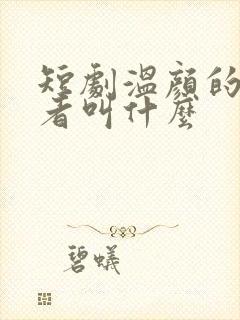 短劇溫顏的
者叫什麼
碧蟻